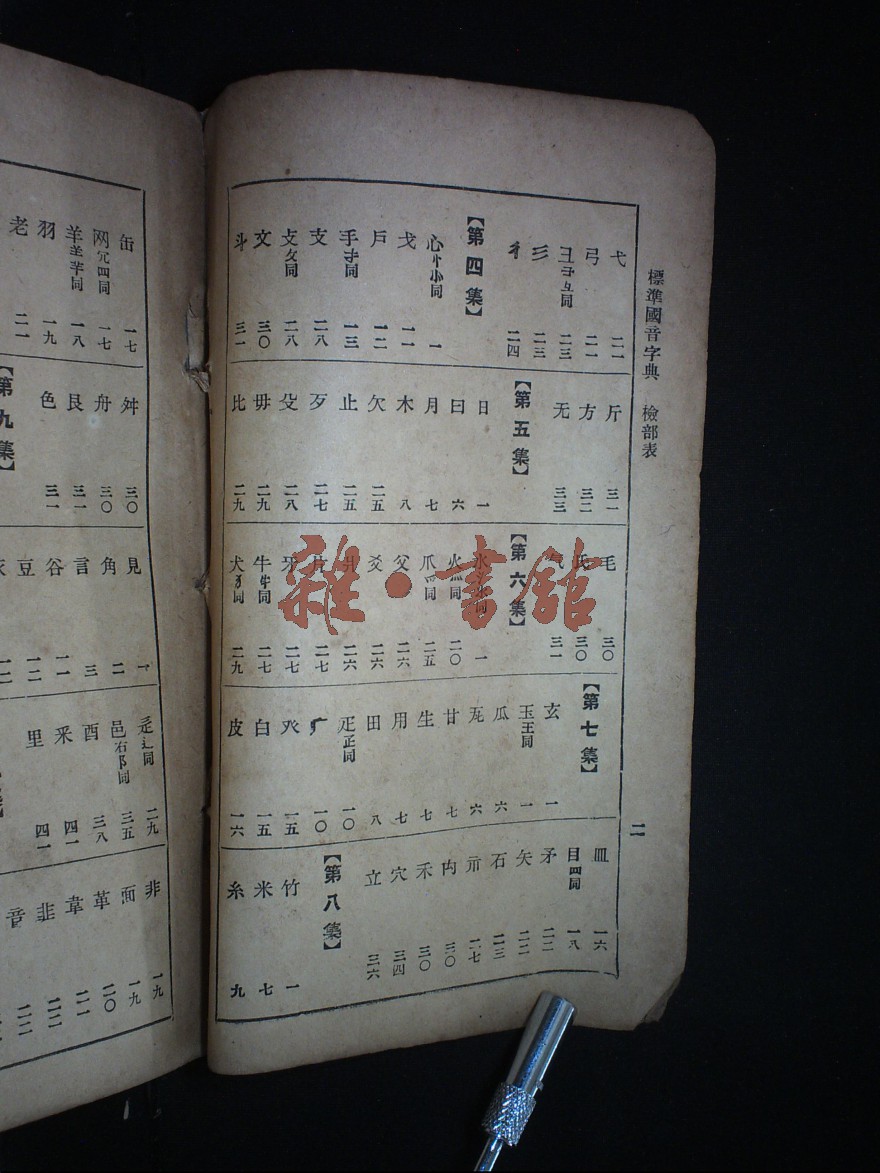 標準國音字典 檢部表
二
弋 二一
弓 二一
彐彑同 二三
彡 二三
彳 二四
【第四集】
心忄㣺同 一
戈 一一
戶 一二
手扌同 一三
支 二八
攴攵同 二八
文 三〇
斗 三一
斤 三一
方 三二
无 三三
【第五集】
日 一
曰 六
月 七
木 八
欠 二五
止 二五
歹 二七
殳 二八
毋 二九
比 二九
毛 三〇
氏 三〇
气 三一
【第六集】
水 同 一
火灬同 二〇
爪爫同 二五
父 二六
爻 二六
爿 二六
片 二七
牙 二七
牛牜同 二七
犬犭同 二九
【第七集】
玄 一
玉王同 一
瓜 六
瓦 六
甘 七
生 七
用 七
田 八
疋 同 一〇
疒 一〇
癶 一五
白 一五
皮 一六
皿 一六
目罒同 一八
矛 二二
矢 二二
石 二三
示 二七
禸 三〇
禾 三〇
穴 三四
立 三六
【第八集】
竹 一
米 七
糸 九
缶 一七
网 罒同 一七
羊 同 一八
羽 一九
老 二一
舛 三〇
舟 三〇
艮 三一
色 三一
【第九集】
見 一
角 二
言 三
谷 一一
豆 一二
辵辶同 二九
邑右阝同 三五
酉 三八
釆 四一
里 四一
非 一九
面 一九
革 二〇
韋 二一
韭 二二
音 二二
雜·書館